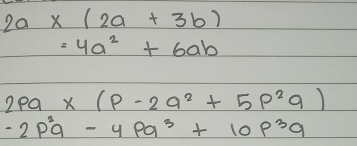 2a × (2a + 3b)
= 4a² + 6ab
2pq × (p - 2q² + 5p²q)
- 2p²q - 4pq³ + 10p³q